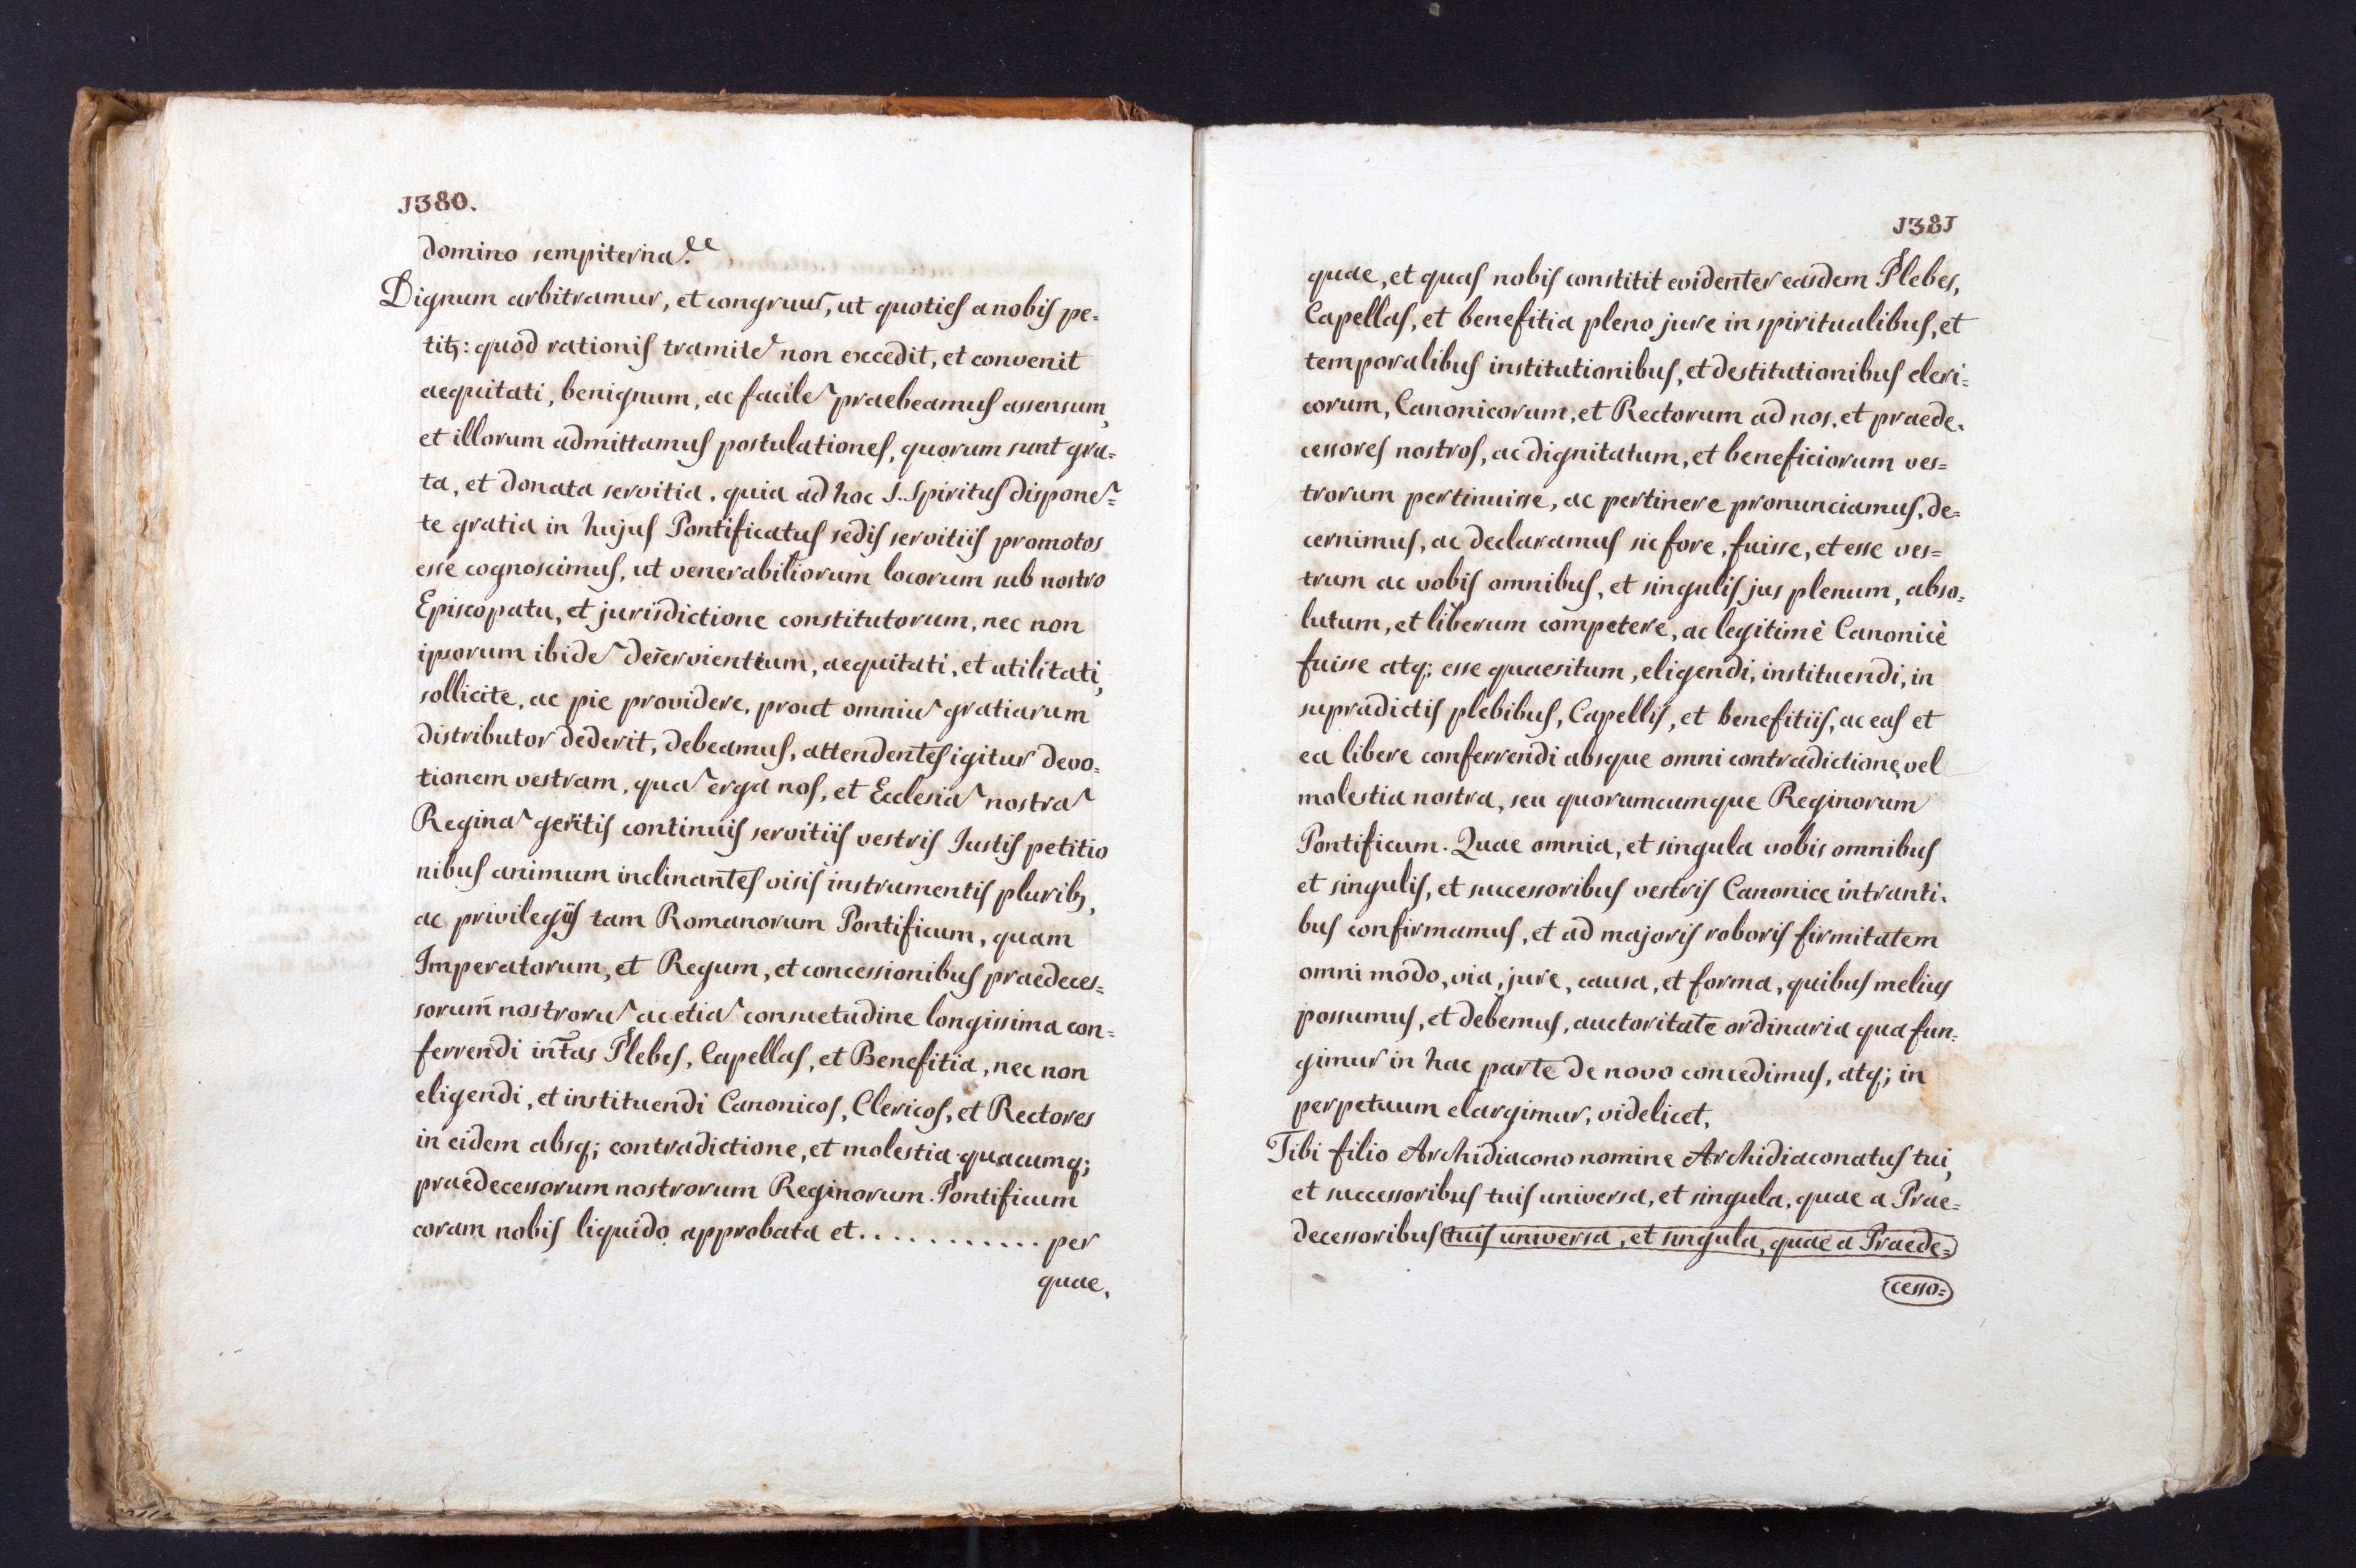 1380.
domino sempiterna. &c
Dignum arbitramur, et congruũ, ut quoties a nobis pe-
titʒ: quod rationis tramitẽ non excedit, et convenit
aequitati, benignum, ac facilẽ praebeamus assensum,
et illorum admittamus postulationes, quorum sunt gra=
ta, et donata servitia, quia ad hoc S. Spiritus disponẽ=
te gratia in hujus Pontificatus sedis servitiis promotos
esse cognoscimus, ut venerabiliorum locorum sub nostro
Episcopatu, et jurisdictione constitutorum, nec non
ipsorum ibidẽ deservientium, aequitati, et utilitati,
sollicite, ac pie providere, prout omniũ gratiarum
distributor dederit, debeamus, attendentes igitur devo=
tionem vestram, quã erga nos, et Ecclesiã nostrã
Reginã geritis continuis servitiis vestris Iustis petitio
nibus animum inclinantes visis instrumentis pluribʒ,
ac privilegijs tam Romanorum Pontificum, quam
Imperatorum, et Regum, et concessionibus praedeces=
sorum nostrorũ ac etiã consuetudine longissima con=
ferrendi infr̃as Plebes, Capellas, et Benefitia, nec non
eligendi, et instituendi Canonicos, Clericos, et Rectores
in eidem absq; contradictione, et molestia quacumq;
praedecessorum nostrorum Reginorum Pontificum
coram nobis liquido approbata et . . . . . . . . . . . . per
quae,
1381
quae, et quas nobis constitit evidenter easdem Plebes,
Capellas, et benefitia pleno jure in spiritualibus, et
temporalibus institutionibus, et destitutionibus cleri=
corum, Canonicorum, et Rectorum ad nos, et praede-
cessores nostros, ac dignitatum, et beneficiorum ves=
trorum pertinuisse, ac pertinere pronunciamus, de=
cernimus, ac declaramus sic fore, fuisse, et esse ves=
trum ac vobis omnibus, et singulis jus plenum, abso=
lutum, et liberum competere, ac legitimè Canonicè
fuisse atq; esse quaesitum, eligendi, instituendi, in
supradictis plebibus, Capellis, et benefitiis, ac eas et
ea libere conferrendi absque omni contradictione, vel
molestia nostra, seu quorumcumque Reginorum
Pontificum. Quae omnia, et singula vobis omnibus
et singulis, et successoribus vestris Canonice intranti-
bus confirmamus, et ad majoris roboris firmitatem
omni modo, via, jure, causa, et forma, quibus melius
possumus, et debemus, auctoritate ordinaria qua fun=
gimur in hac parte de novo concedimus, atq; in
perpetuum elargimur, videlicet,
Tibi filio Archidiacono nomine Archidiaconatus tui,
et successoribus tuis universa, et singula, quae a Prae=
decessoribus tuis universa, et singula, quae a Praede=
cesso=